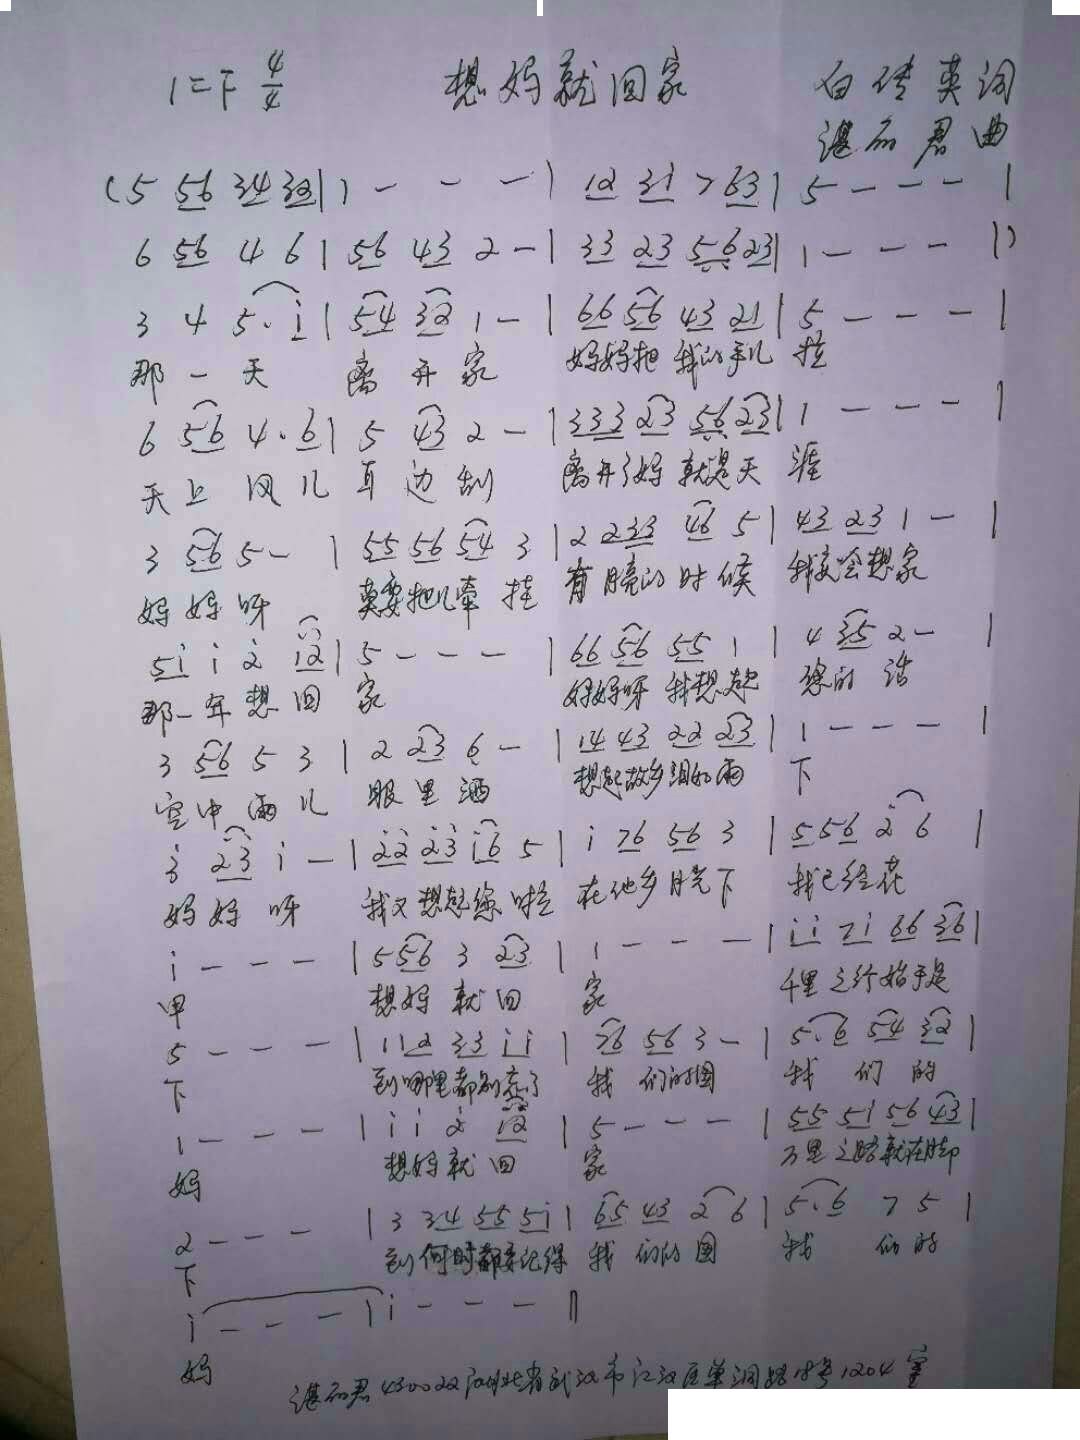 1=F 4/4 想妈就回家 白传英词
谌丽君曲
(5 56 34 32 | 1 - - - | 12 31 7 63 | 5 - - - |
6 56 4 6 | 56 43 2 - | 33 23 5623 | 1 - - - |)
3 4 5. i | 54 32 1 - | 66 56 43 21 | 5 - - - |
那一天 离开家 妈妈把我的手儿 拉
6 56 4. 6 | 5 43 2 - | 333 23 5623 | 1 - - - |
天上风儿 耳边刮 离开了妈就是天 涯
3 56 5 - | 55 56 54 3 | 2 233 46 5 | 43 23 1 - |
妈妈呀 莫要把儿牵挂 有月亮的时候 我会想家
5i i 2 i2 | 5 - - - | 66 56 55 1 | 4 35 2 - |
那一年想回 家 妈妈呀我想起 您的话
3 56 5 3 | 2 23 6 - | 14 43 22 23 | 1 - - - |
空中雨儿 眼里洒 想起故乡泪如雨 下
3 23 i - | 22 23 i6 5 | i 76 56 3 | 5 56 2 6 |
妈妈呀 我又想起您啦 在他乡月光下 我已经花
i - - - | 5 56 3 23 | 1 - - - | ii 7i 66 36 |
甲 想妈就回 家 千里之行始于足
5 - - - | 1 12 33 ii | 76 56 3 - | 5. 6 54 32 |
下 到哪里都别忘了 我们的国 我们的
1 - - - | i i 2 i2 | 5 - - - | 55 51 56 43 |
妈 想妈就回 家 万里之路就在脚
2 - - - | 3 34 55 5i | 65 43 2 6 | 5. 6 7 5 |
下 到何时都要记得 我们的国 我们的
i - - - | i - - - ‖
妈
谌丽君430022湖北省武汉市江汉区单洞路18号1204室